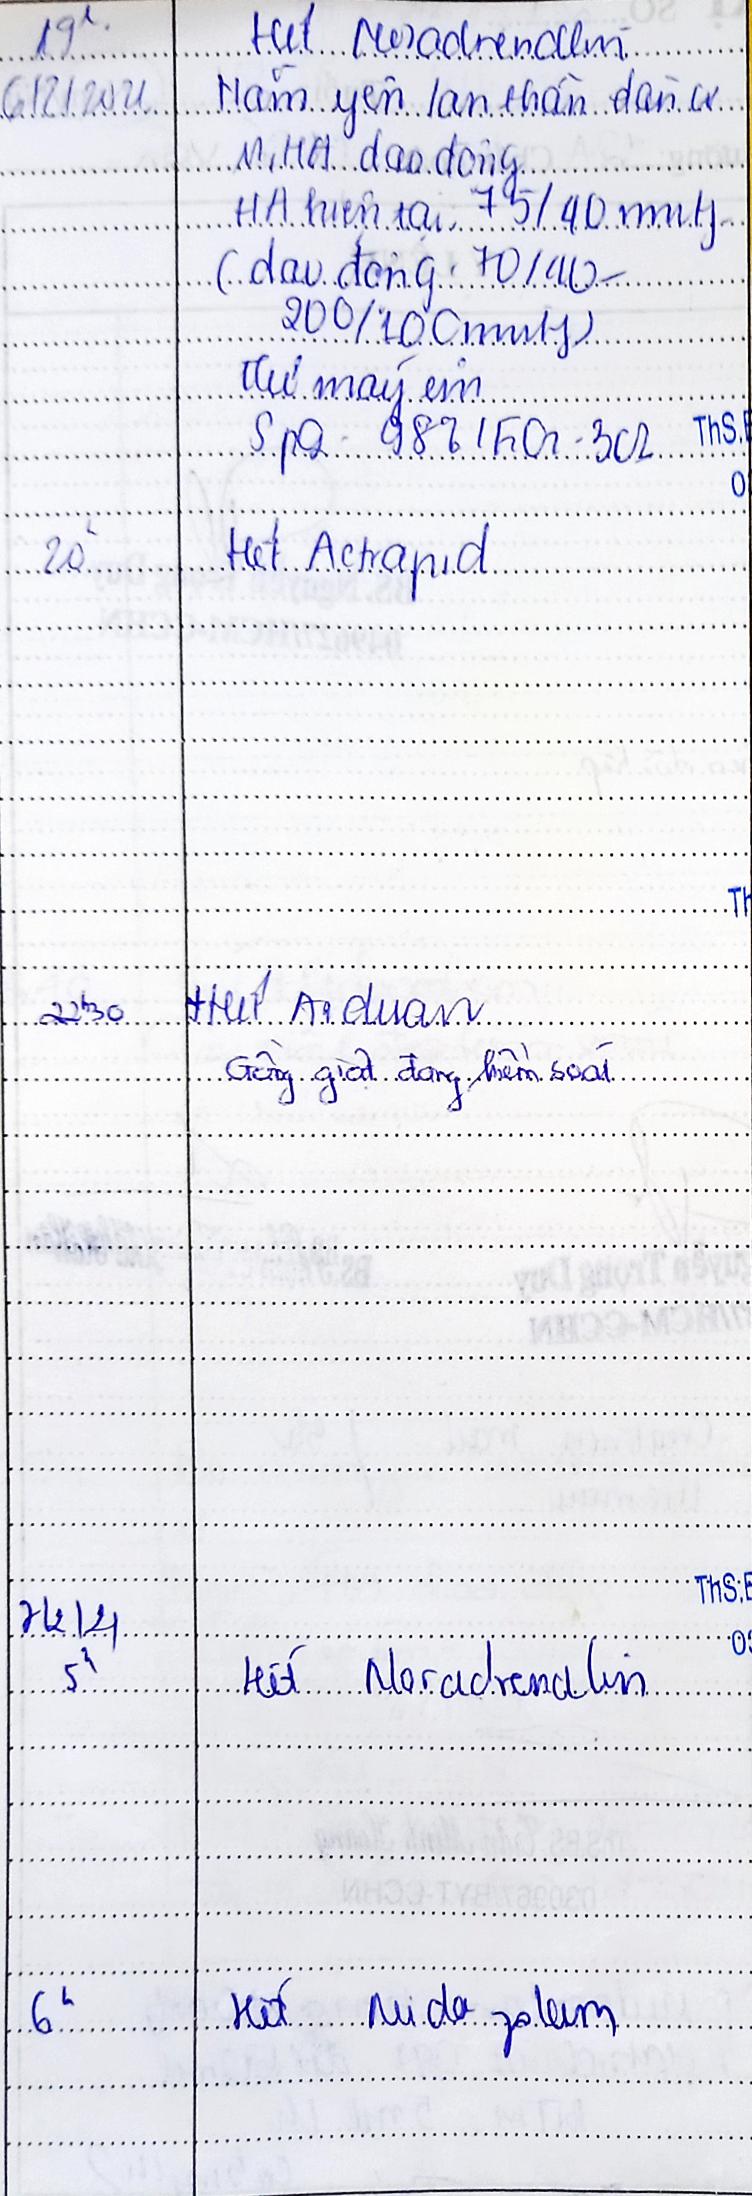 19h
Hết Noradrenalin
6/2/2021 Nằm yên lan thần dãn cơ
M, HA dao động
HA hiện tại 75/40 mmHg
(dao động: 70/40-
200/100mmHg)
Thở máy êm
SpO2 98% FiO2 30%
ThS.B
20h Hết Actrapid
Th
22h30 Hết Arduan
Gồng giật đang kiểm soát
ThS.B
7/2/21
5h Hết Noradrenalin
6h Hết Midazolam